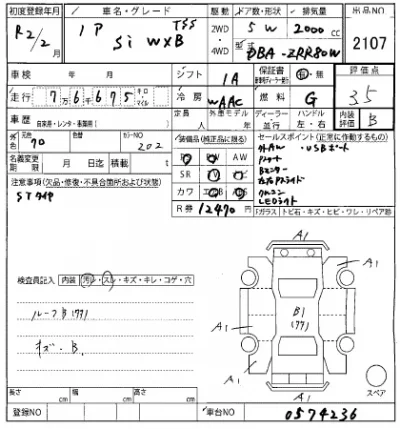 初度登録年月 車名・グレード 駆動 ドア数・形状 排気量 出品NO
R2/2月 TSS 2WD 5 W 2000cc
Si W×B ・4WD 型式 DBA-ZRR80W 2107
車検 年 月 シフト 1A 保証書 有・無 評価点
走行 7万6千675 キロ・マイル 冷房 WAAC 燃料 G 3.5
車歴 自家用・レンタ・事業用( ) 定員 人 外車モデル 年 ディーラー・並行 ハンドル 左・右 内装評価 B
色 元色 70 色替 カラーNO 202 装備品(純正品に限る) セールスポイント(正常に作動するもの)
AW 社外AW ・USBポート
名義変更期限 月 日迄 積載 t SR TV ナビ ナビ
注意事項(欠品・修復・不具合箇所および状態) カワ エアB ABS Bモニター
STタイヤ R券 12470円 左右Pスライド
クルコン
LEDライト
Fガラス トビ石・キズ・ヒビ・ワレ・リペア跡
検査員記入 内装 汚・スレ・キズ・キレ・コゲ・穴
ルーフB(77)
キズ・B.
A1
A1
A1
B1
(77)
A1
A1
A1
スペア
長さ cm 幅 cm 高さ cm
登録NO 車台NO 0574236